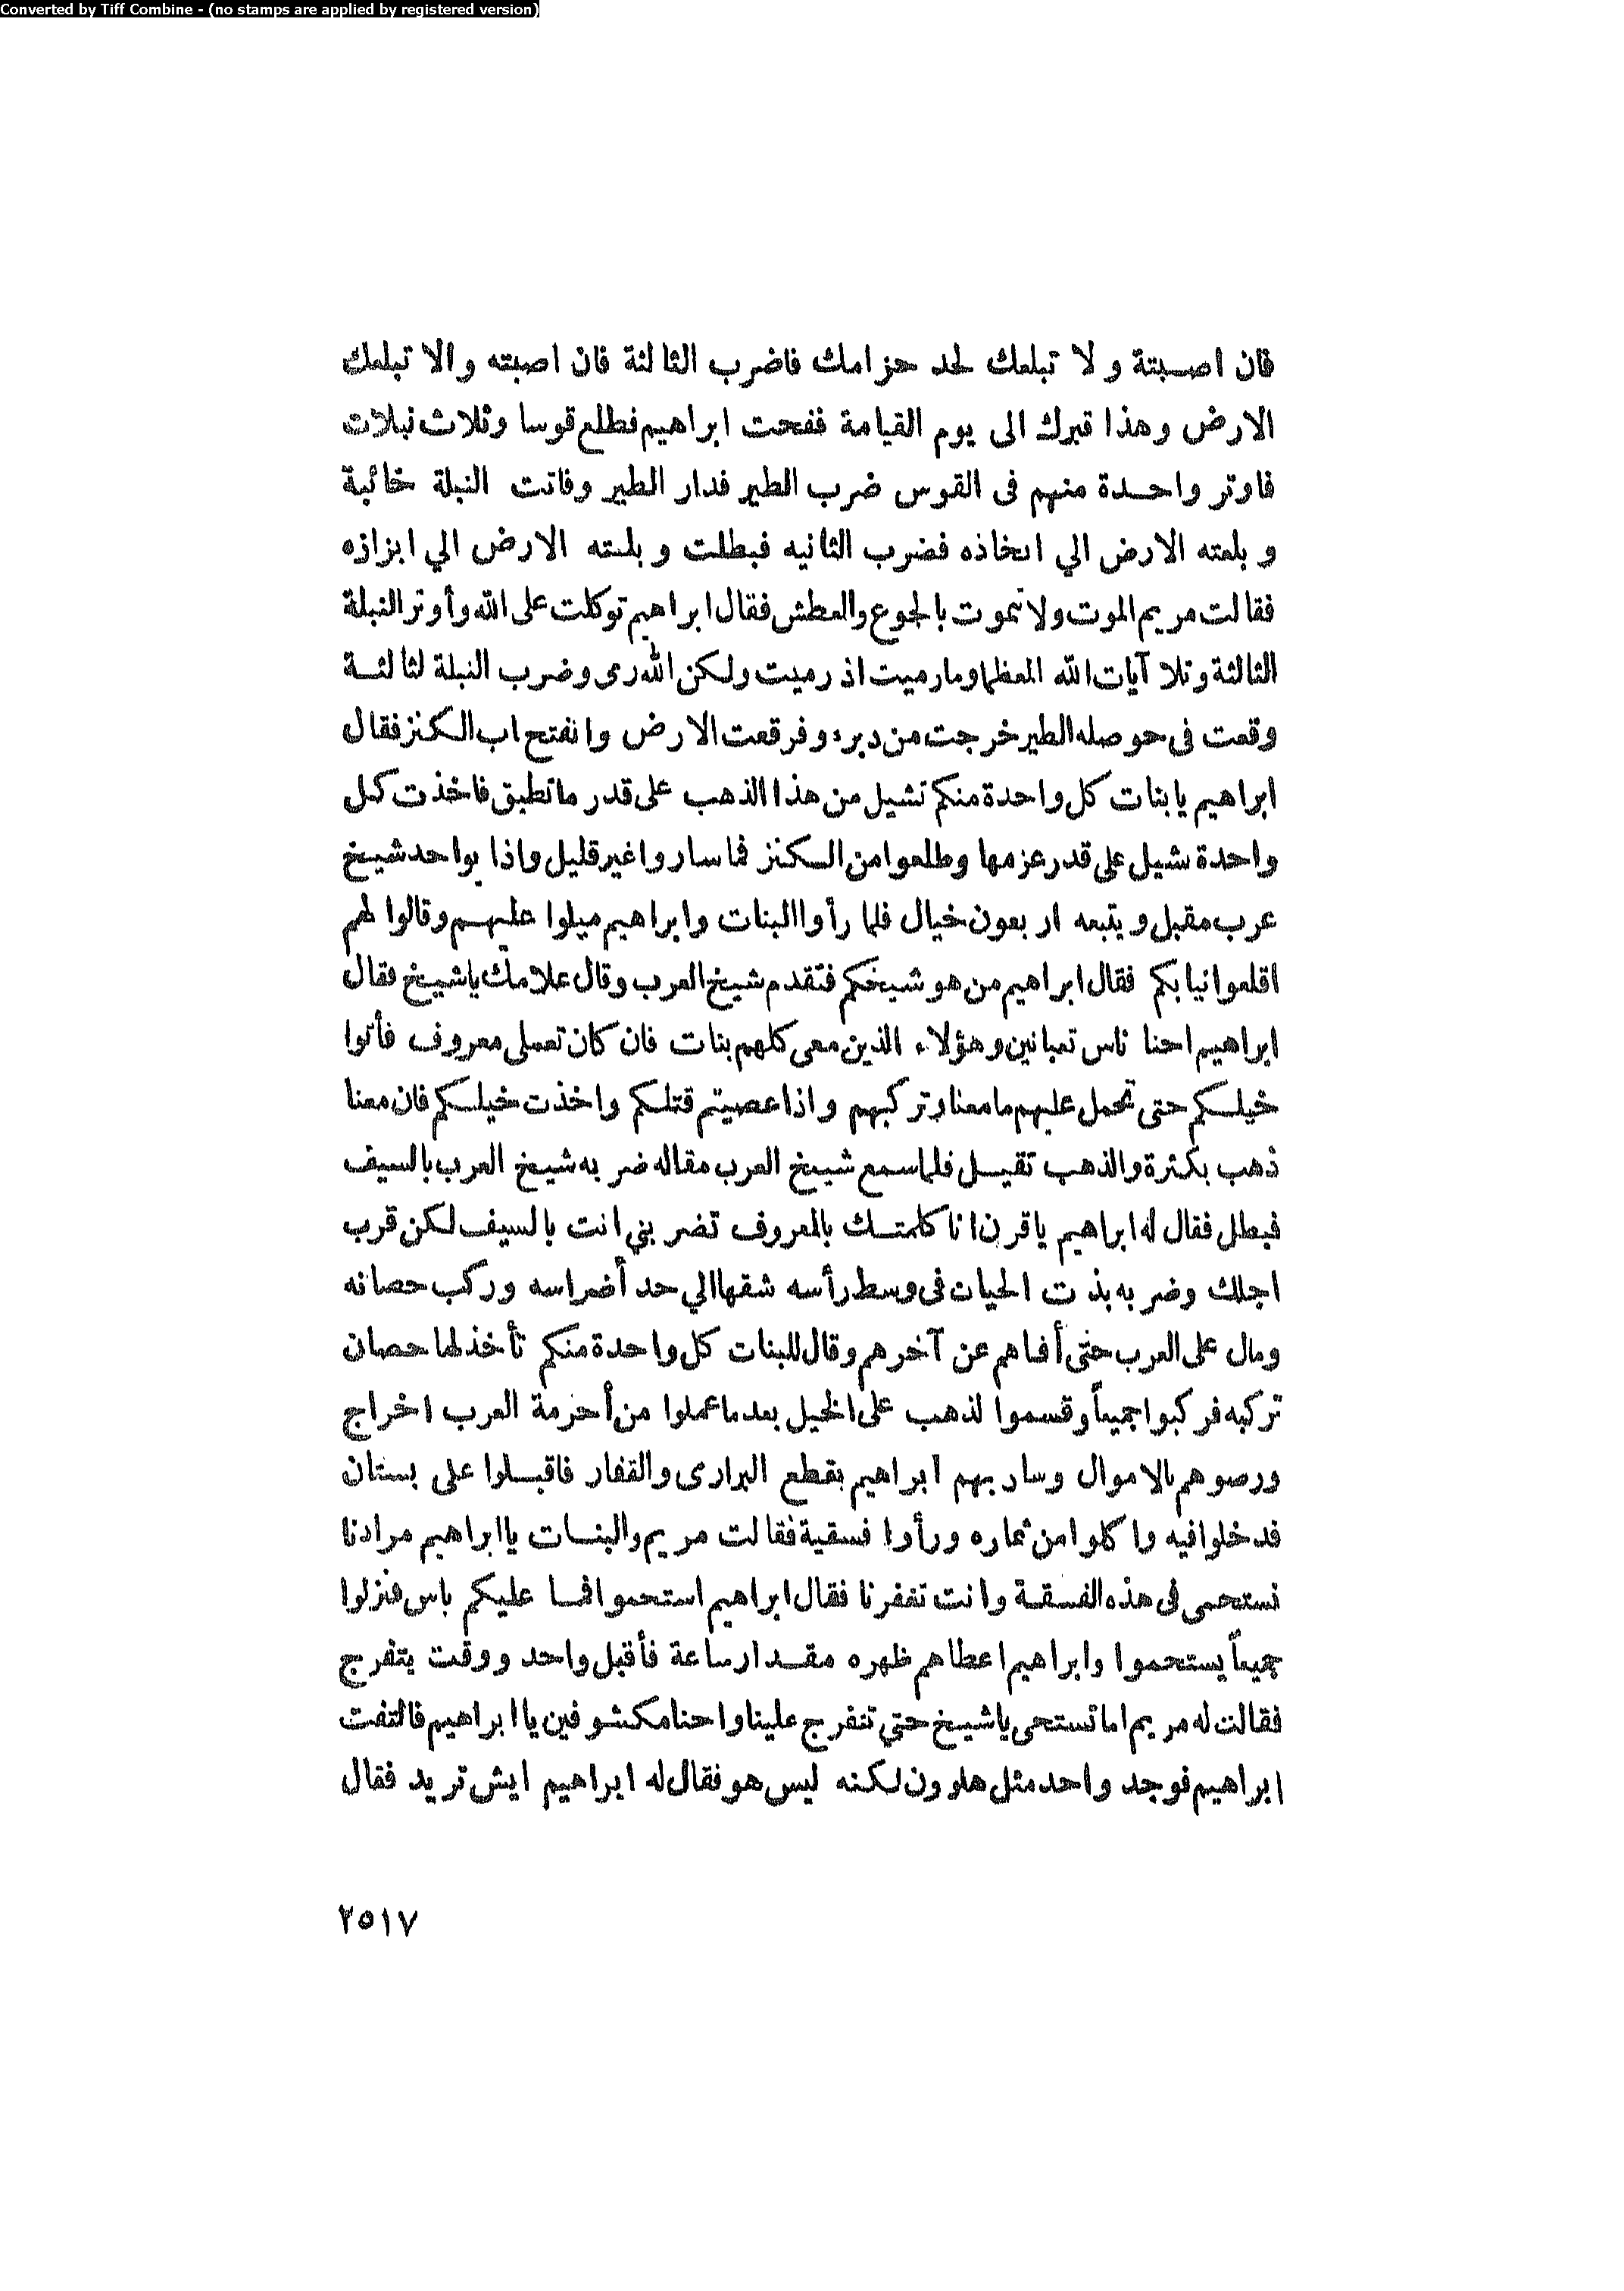 Converted by Tiff Combine - (no stamps are applied by registered version)
فان اصبتة ولا تبلعك لحد حزامك فاضرب الثالثة فان اصبته والا تبلعك
الارض وهذا قبرك الى يوم القيامة ففحت ابراهيم فطلع قوسا وثلاث نبلات
فاوتر واحدة منهم فى القوس ضرب الطير فدار الطير وفاتت النبلة خائبة
وبلعته الارض الي افخاذه فضرب الثانيه فبطلت وبلعته الارض الي ابزازه
فقالت مريم الموت ولا نموت بالجوع والعطش فقال ابراهيم توكلت على الله وأوتر النبلة
الثالثة وتلا آيات الله العظما ومارميت اذ رميت ولكن الله رمى وضرب النبلة لثالثة
وقعت فى حوصله الطير خرجت من دبره وفرقعت الارض وانفتح اب الكنز فقال
ابراهيم يابنات كل واحدة منكم تشيل من هذا الذهب على قدر ماتطيق فاخذت كل
واحدة شيل على قدر عزمها وطلعوا من الكنز فما ساروا غير قليل واذا بواحد شيخ
عرب مقبل ويتبعه اربعون خيال فلما رأوا البنات وابراهيم ميلوا عليهم وقالوا لهم
اقلعوا ثيابكم فقال ابراهيم من هو شيخكم فتقدم شيخ العرب وقال علامك ياشيخ فقال
ابراهيم احنا ناس تعبانين وهؤلاء الذين معى كلهم بنات فان كان تعملى معروف فأتوا
خيلكم حتى تحمل عليهم مامعنا وتركبهم واذا عصيتم قتلكم واخذت خيلكم فان معنا
ذهب بكثرة والذهب تقيل فلما سمع شيخ العرب مقاله ضربه شيخ العرب بالسيف
فبطل فقال له ابراهيم ياقرن انا كلمتك بالمعروف تضربني انت بالسيف لكن قرب
اجلك وضربه بذت الحيات فى وسط رأسه شقها الي حد أضراسه وركب حصانه
ومال على العرب حتى أفناهم عن آخرهم وقال للبنات كل واحدة منكم تأخذ لها حصان
تركبه فركبوا جميعاً وقسموا لذهب على الخيل بعد ماعملوا من أحزمة العرب اخراج
ورصوهم بالاموال وسار بهم ابراهيم يقطع البرارى والقفار فاقبلوا على بستان
فدخلوا فيه واكلوا من ثماره ورأوا فسقية فقالت مريم والبنات ياابراهيم مرادنا
نستحمى فى هذه الفسقة وانت تغفرنا فقال ابراهيم استحموا فما عليكم باس فنزلوا
جميعاً يستحموا وابراهيم اعطاهم ظهره مقدار ساعة فأقبل واحد ووقت يتفرج
فقالت له مريم اما تستحى ياشيخ حتى تنفرج علينا واحنا مكشوفين ياابراهيم فالتفت
ابراهيم فوجد واحد مثل هلوون لكنه ليس هو فقال له ابراهيم ايش تريد فقال
٢٥١٧